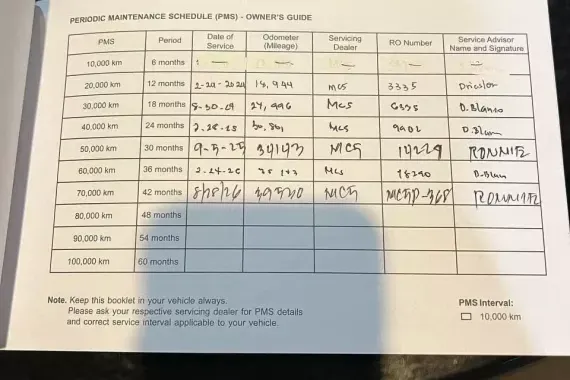 PERIODIC MAINTENANCE SCHEDULE (PMS) - OWNER'S GUIDE
PMS Period Date of Service Odometer (Mileage) Servicing Dealer RO Number Service Advisor Name and Signature
10,000 km 6 months
20,000 km 12 months 2-20-2024 18,944 MCS 3335
30,000 km 18 months 8-30-24 24,996 MCS 6335 D.Blanco
40,000 km 24 months 2-28-25 30,801 MCS 9902
50,000 km 30 months 9-5-25 34143 MCS 14229 RONNIE
60,000 km 36 months 2-24-26 MCS 18290
70,000 km 42 months 8/18/26 39530 MCS MCSP-368 RONNIE
80,000 km 48 months
90,000 km 54 months
100,000 km 60 months
Note. Keep this booklet in your vehicle always.
Please ask your respective servicing dealer for PMS details
and correct service interval applicable to your vehicle.
PMS Interval:
10,000 km